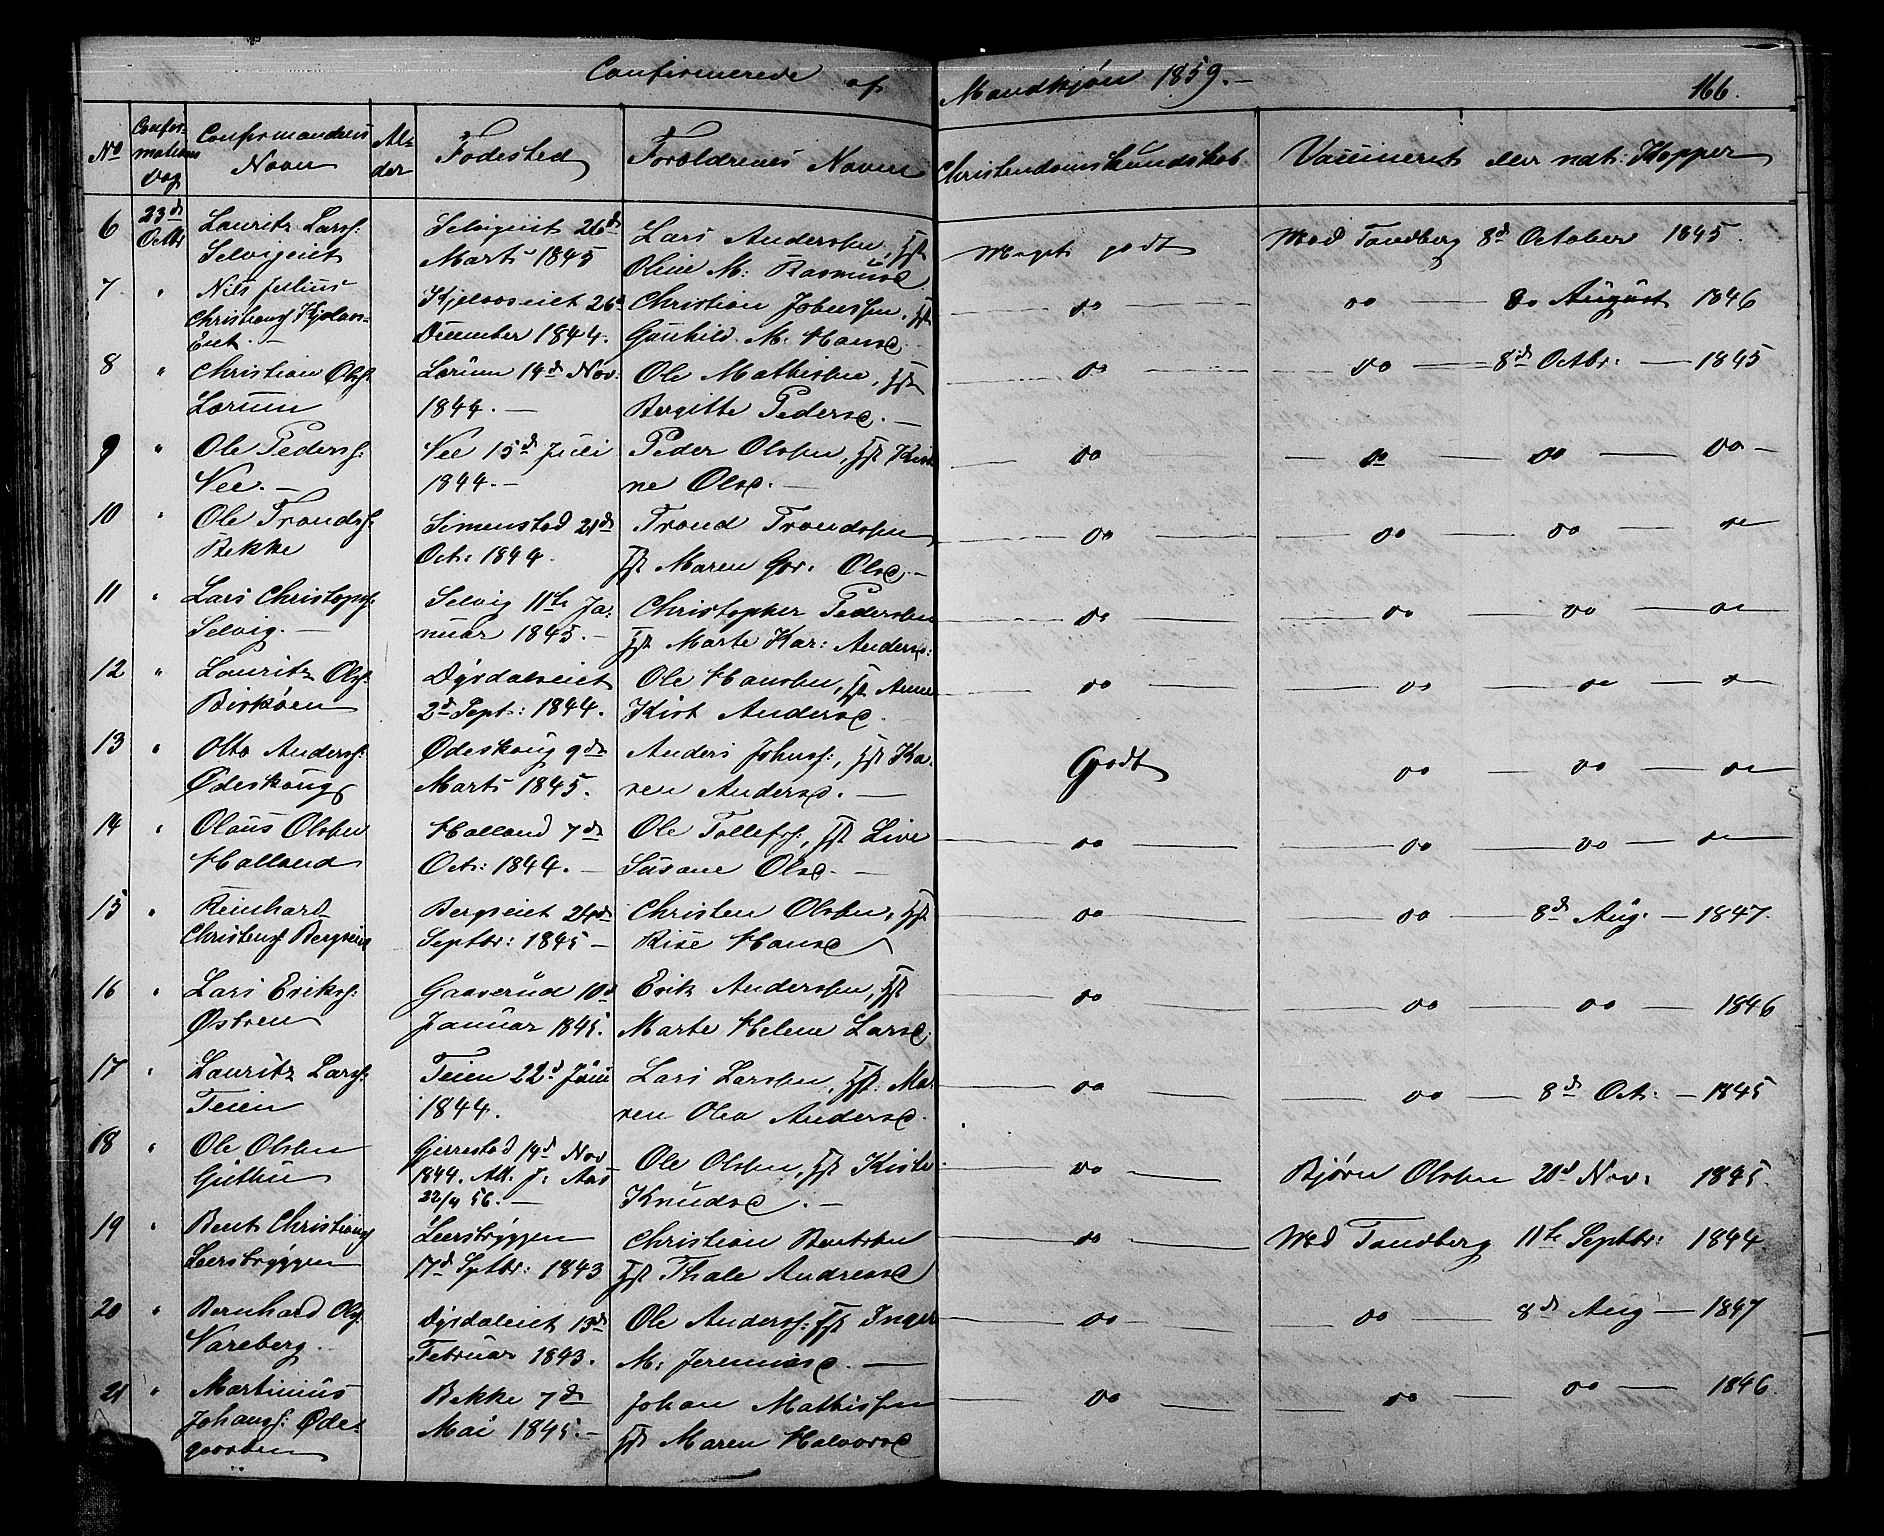 Confirmerede af Mandkjøn 1859.—
166.
No Confirmations Dag Confirmandens Navn Alder Fødested Forældrenes Navne Christendomskundskab Vaccineret eller nat: Kopper
6 23de Octbr Lauritz Larss: Selvigeiet Selvigeiet 26de Marts 1845 Lars Anderssen, Hst Oline M: Rasmusd Meget godt Med Tandberg 8de October 1845.
7 " Nils Julius Christians Kjelaaseiet.— Kjelaaseiet 26d December 1844. Christian Johnssen, Hst Gunhild. M. Hansd. do do 8de August 1846
8 " Christian Olss: Lørum Lørum 14de Nov. 1844.— Ole Mathissen, Hst Bergitte Pedersd.— do do 8de Octbr: 1845
9 " Ole Pederss: Vee.— Vee 15de Juli 1844.— Peder Olssen, Hst Kirstine Olsd.— do do do do
10 " Ole Tronds: Bekke Simenstad 21de Oct: 1844. Trond Trondssen, Hst Maren Gor: Olsd.— do do do do
11 " Lars Christophs: Selvig.— Selvig 11te Januar 1845.— Christopher Pederssen Hst Marte Kar: Andersd: do do do do
12 " Lauritz Olss: Birkøen Dÿrdalseiet 2de Sept: 1844. Ole Hanssen, Hst Anne Kirst Andersd. do do do do
13 " Otto Anderss: Ødeskoug Ødeskoug 9de Marts 1845. Anders Johnss:, Hst Karen Andersd.— Godt do do do
14 " Olaus Olssen Halland Halland 7de Oct: 1844.— Ole Tollefss:, Hst Live Susane Olsd.— do do do do
15 " Reinhard Christens Bergseiet Bergseiet 24de Septbr: 1845— Christen Olssen, Hst Rise Hansd do do 8de Aug.— 1847.
16 " Lars Erikss: Østren Gaaserud 10d Januar 1845. Erik Anderssen, Hst Marte Helene Larsd. do do do 1846
17 " Lauritz Larss: Teien Teien 22d Juni 1844. Lars Larssen, Hst: Maren Olea Andersd. do do 8de Oct:— 1845
18 " Ole Olssen Guthu Gjerrestad 14d Nov 1844. Att. f: Aas 22/4 56.— Ole Olssen, Hst Kirste Knudsd.— do Bjørn Olssen 20d Nov: 1845.
19 " Bent Christians Leersbrÿggen Leersbrÿggen 17d Septbr: 1843 Christian Bentssen Hst Thale Andreasd do Med Tandberg 11te Septbr: 1844
20 " Bernhard Olss: Vareberg. Dÿrdaleiet 13de Februar 1843. Ole Anderss: Hst Inger M: Jeremiasd.— do do 8de Aug— 1847
21 " Martinius Johanss: Ødegaarden Bekke 7de Mai 1845.— Johan Mathissen Hst Maren Halvorsd do do do 1846.